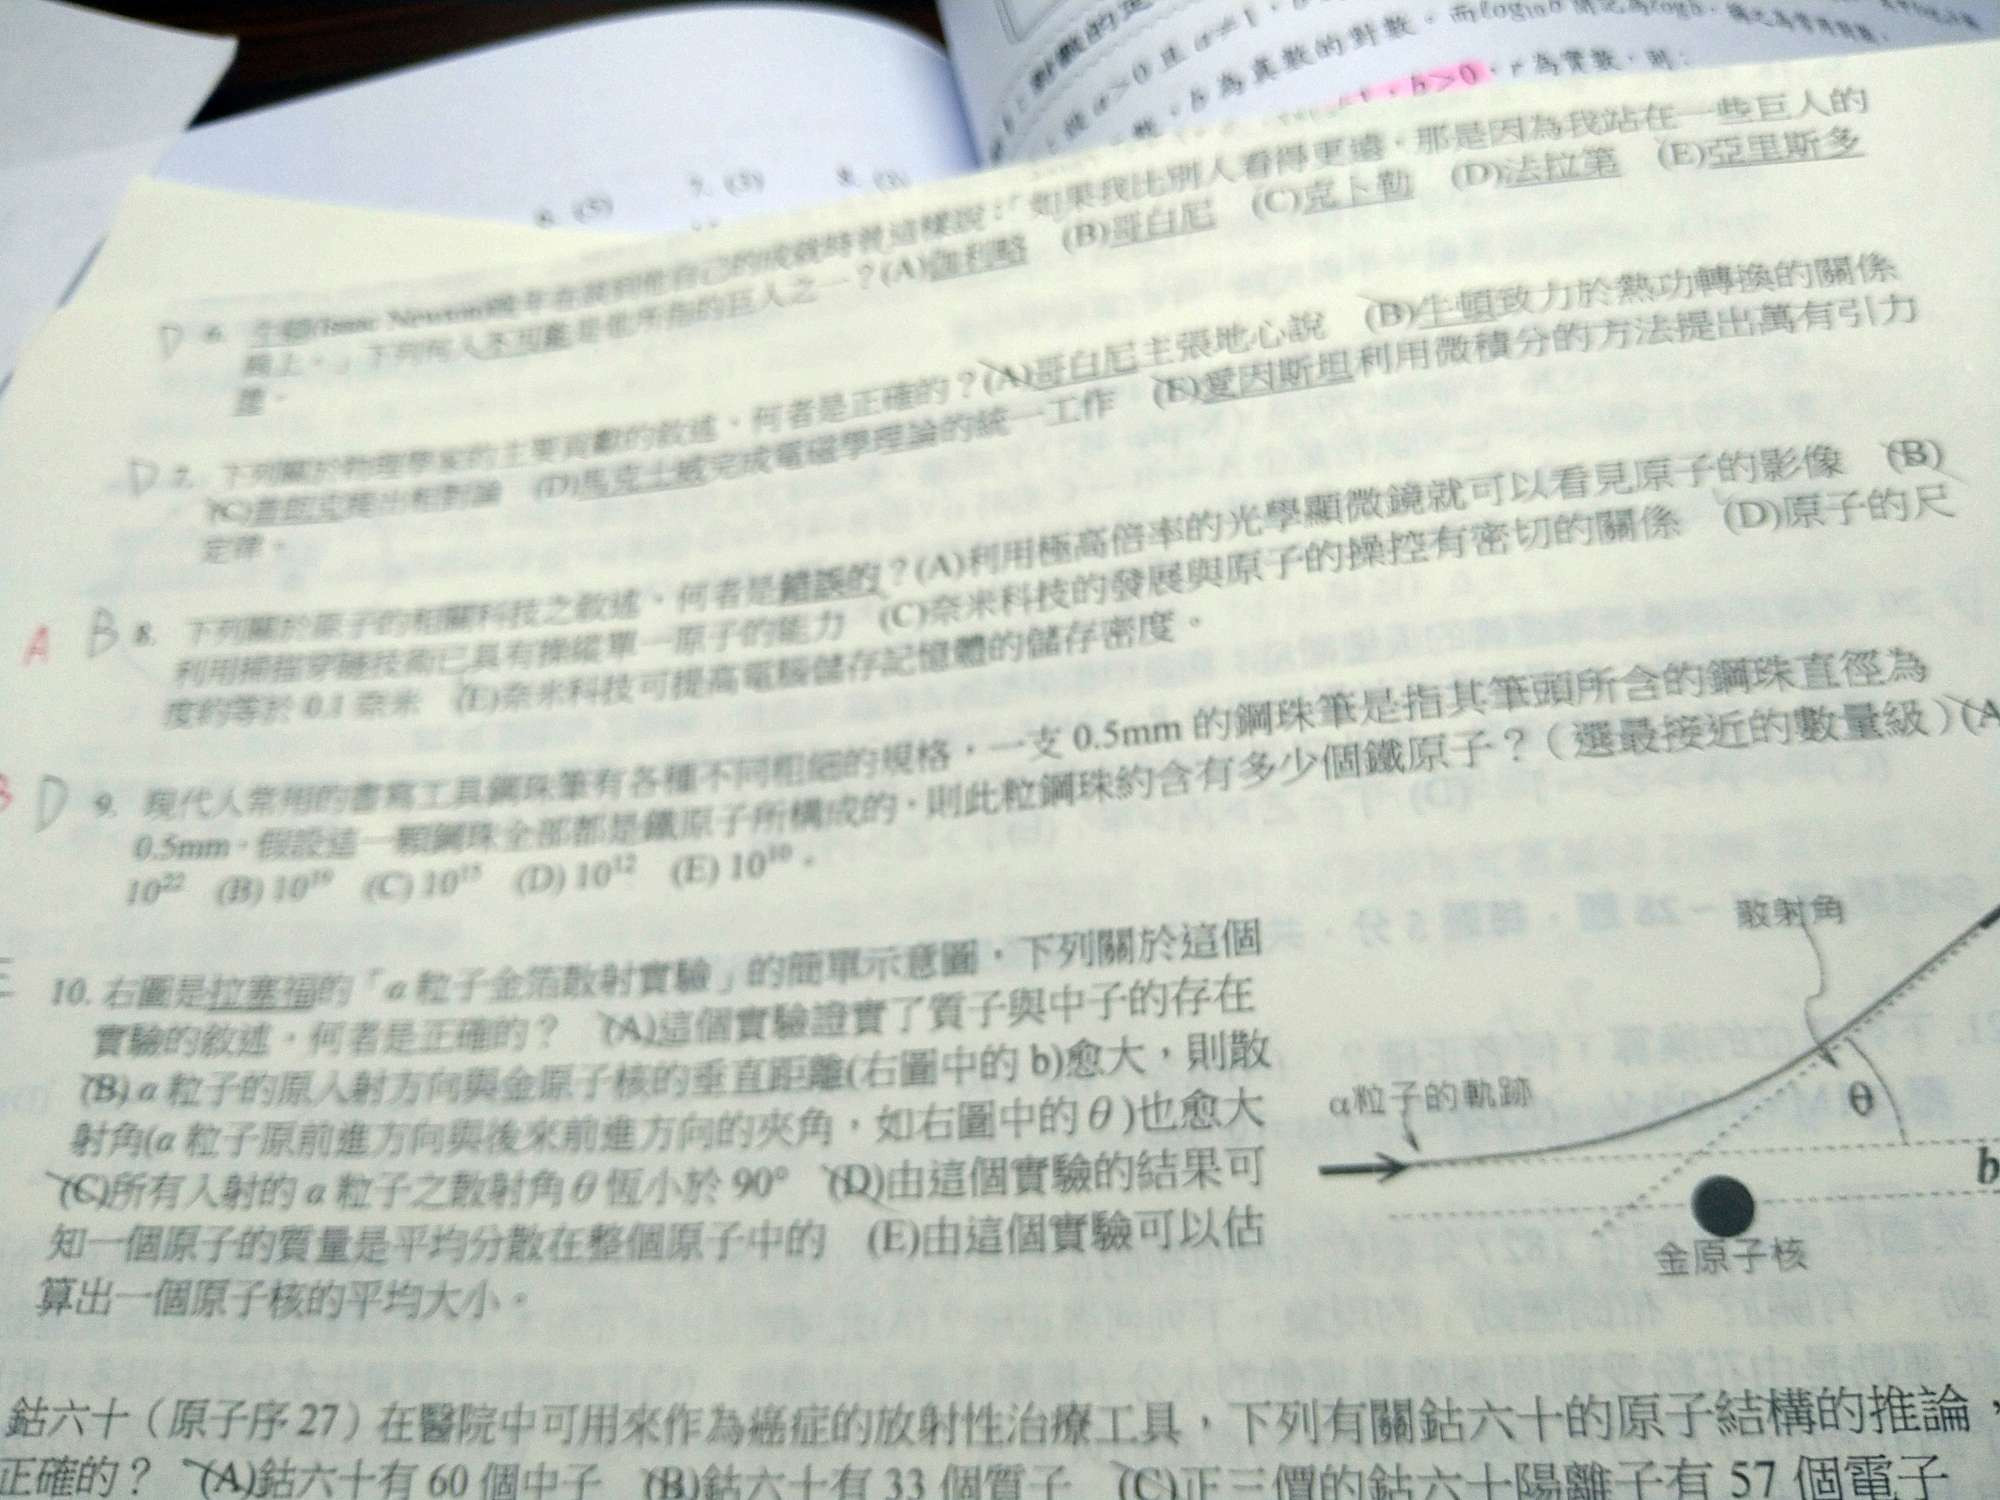 對數的定
，設 a>0 且 a≠1，
b 為真數的對數。而log₁₀b 簡記為logb，稱之為常用對數。
b>0，r 為實數，則：
6. (5) 7. (3) 8. (3)
D 6. 牛頓(Isaac Newton)晚年在談到他自己的成就時曾這樣說：「如果我比別人看得更遠，那是因為我站在一些巨人的
肩上。」下列何人不可能是他所指的巨人之一？(A)伽利略 (B)哥白尼 (C)克卜勒 (D)法拉第 (E)亞里斯多
德。
D 7. 下列關於物理學家的主要貢獻的敘述，何者是正確的？(A)哥白尼主張地心說 (B)牛頓致力於熱功轉換的關係
(C)普朗克提出相對論 (D)馬克士威完成電磁學理論的統一工作 (E)愛因斯坦利用微積分的方法提出萬有引力
定律。
A B 8. 下列關於原子的相關科技之敘述，何者是錯誤的？(A)利用極高倍率的光學顯微鏡就可以看見原子的影像 (B)
利用掃描穿隧技術已具有操縱單一原子的能力 (C)奈米科技的發展與原子的操控有密切的關係 (D)原子的尺
度約等於 0.1 奈米 (E)奈米科技可提高電腦儲存記憶體的儲存密度。
B D 9. 現代人常用的書寫工具鋼珠筆有各種不同粗細的規格，一支 0.5mm 的鋼珠筆是指其筆頭所含的鋼珠直徑為
0.5mm。假設這一顆鋼珠全部都是鐵原子所構成的，則此粒鋼珠約含有多少個鐵原子？（選最接近的數量級）(A
10²² (B) 10¹⁹ (C) 10¹⁵ (D) 10¹² (E) 10¹⁰。
10. 右圖是拉塞福的「α 粒子金箔散射實驗」的簡單示意圖，下列關於這個
實驗的敘述，何者是正確的？ (A)這個實驗證實了質子與中子的存在
(B) α 粒子的原入射方向與金原子核的垂直距離(右圖中的 b)愈大，則散
射角(α 粒子原前進方向與後來前進方向的夾角，如右圖中的 θ )也愈大
(C)所有入射的 α 粒子之散射角 θ 恆小於 90° (D)由這個實驗的結果可
知一個原子的質量是平均分散在整個原子中的 (E)由這個實驗可以估
算出一個原子核的平均大小。
散射角
α粒子的軌跡
θ
b
金原子核
鈷六十（原子序 27）在醫院中可用來作為癌症的放射性治療工具，下列有關鈷六十的原子結構的推論，
正確的？ (A)鈷六十有 60 個中子 (B)鈷六十有 33 個質子 (C)正三價的鈷六十陽離子有 57 個電子